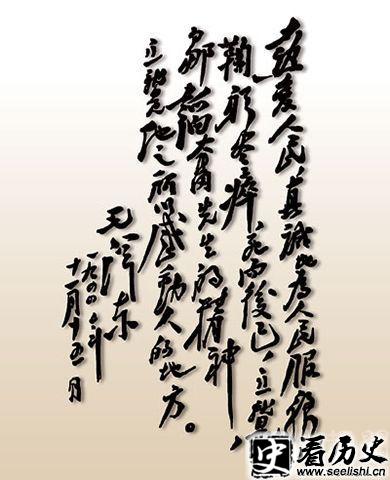 熱愛人民,真誠地為人民服務,
鞠躬尽瘁,死而後已,這就是
鄒韜奮先生的精神,
這就是他之所以感動人的地方。
毛澤东
一九四四年
十一月十五日
史 看历史
www.seelishi.cn